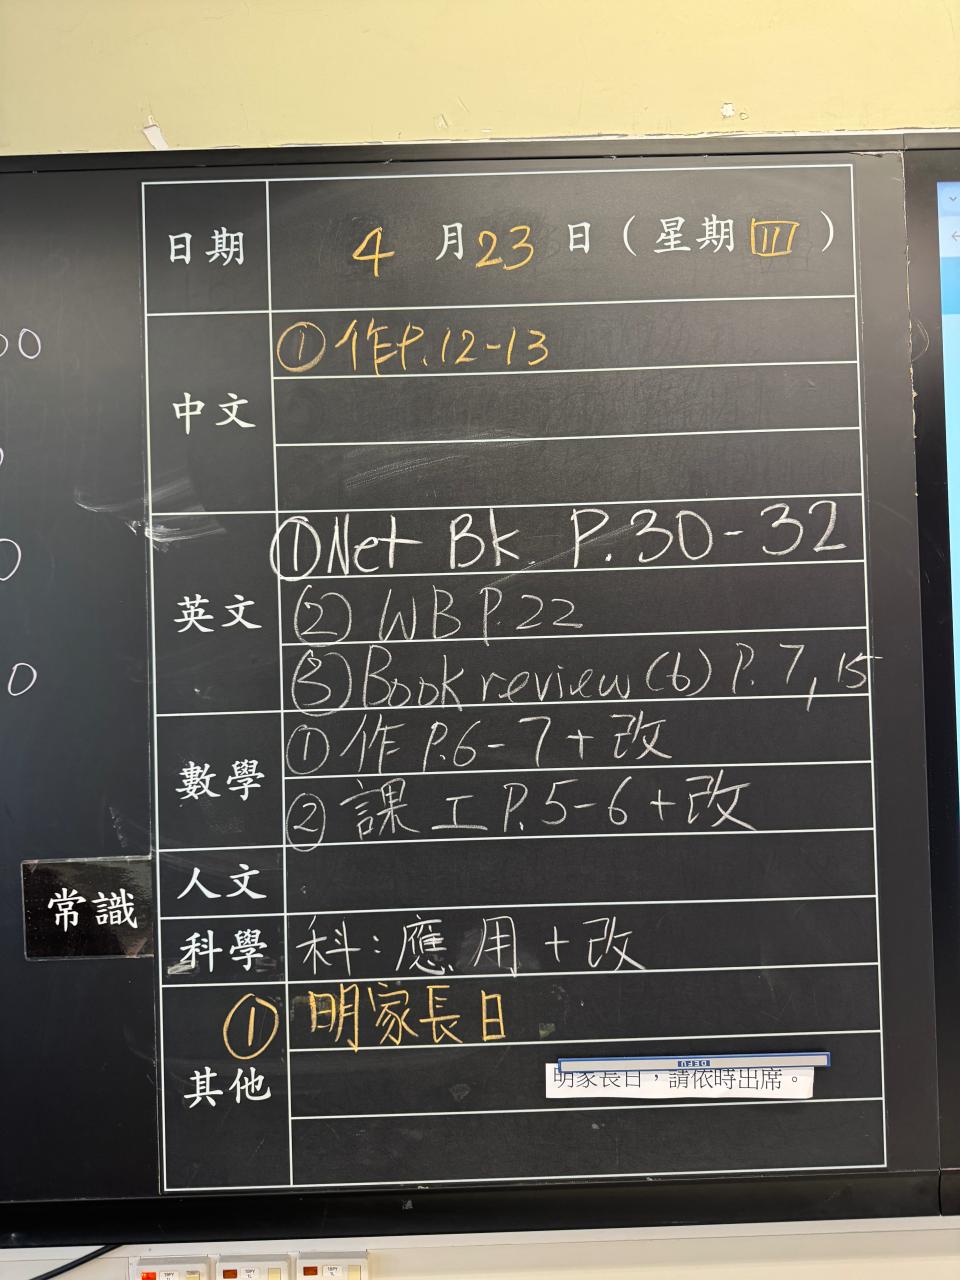 日期 4 月 23 日（星期 四）
中文
① 作P.12-13
英文
① Net Bk P.30-32
② WB P.22
③ Book review (6) P.7, 15
數學
① 作 P.6-7+改
② 課工 P.5-6+改
人文
常識
科學
科：應用+改
其他
① 明家長日
DELI
明家長日，請依時出席。